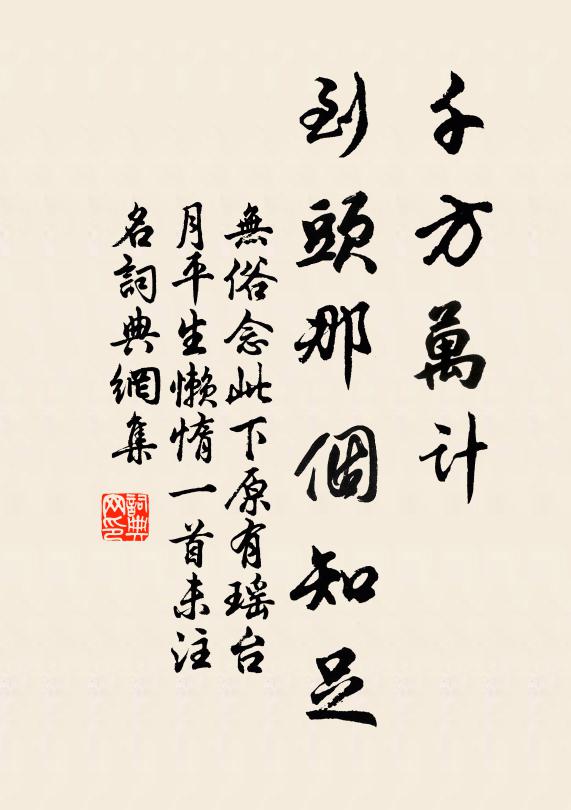 千方萬計
到頭那個知足
無俗念此下原有瑶台
月平生懒惰一首未注
名詞典網集
詞典网印